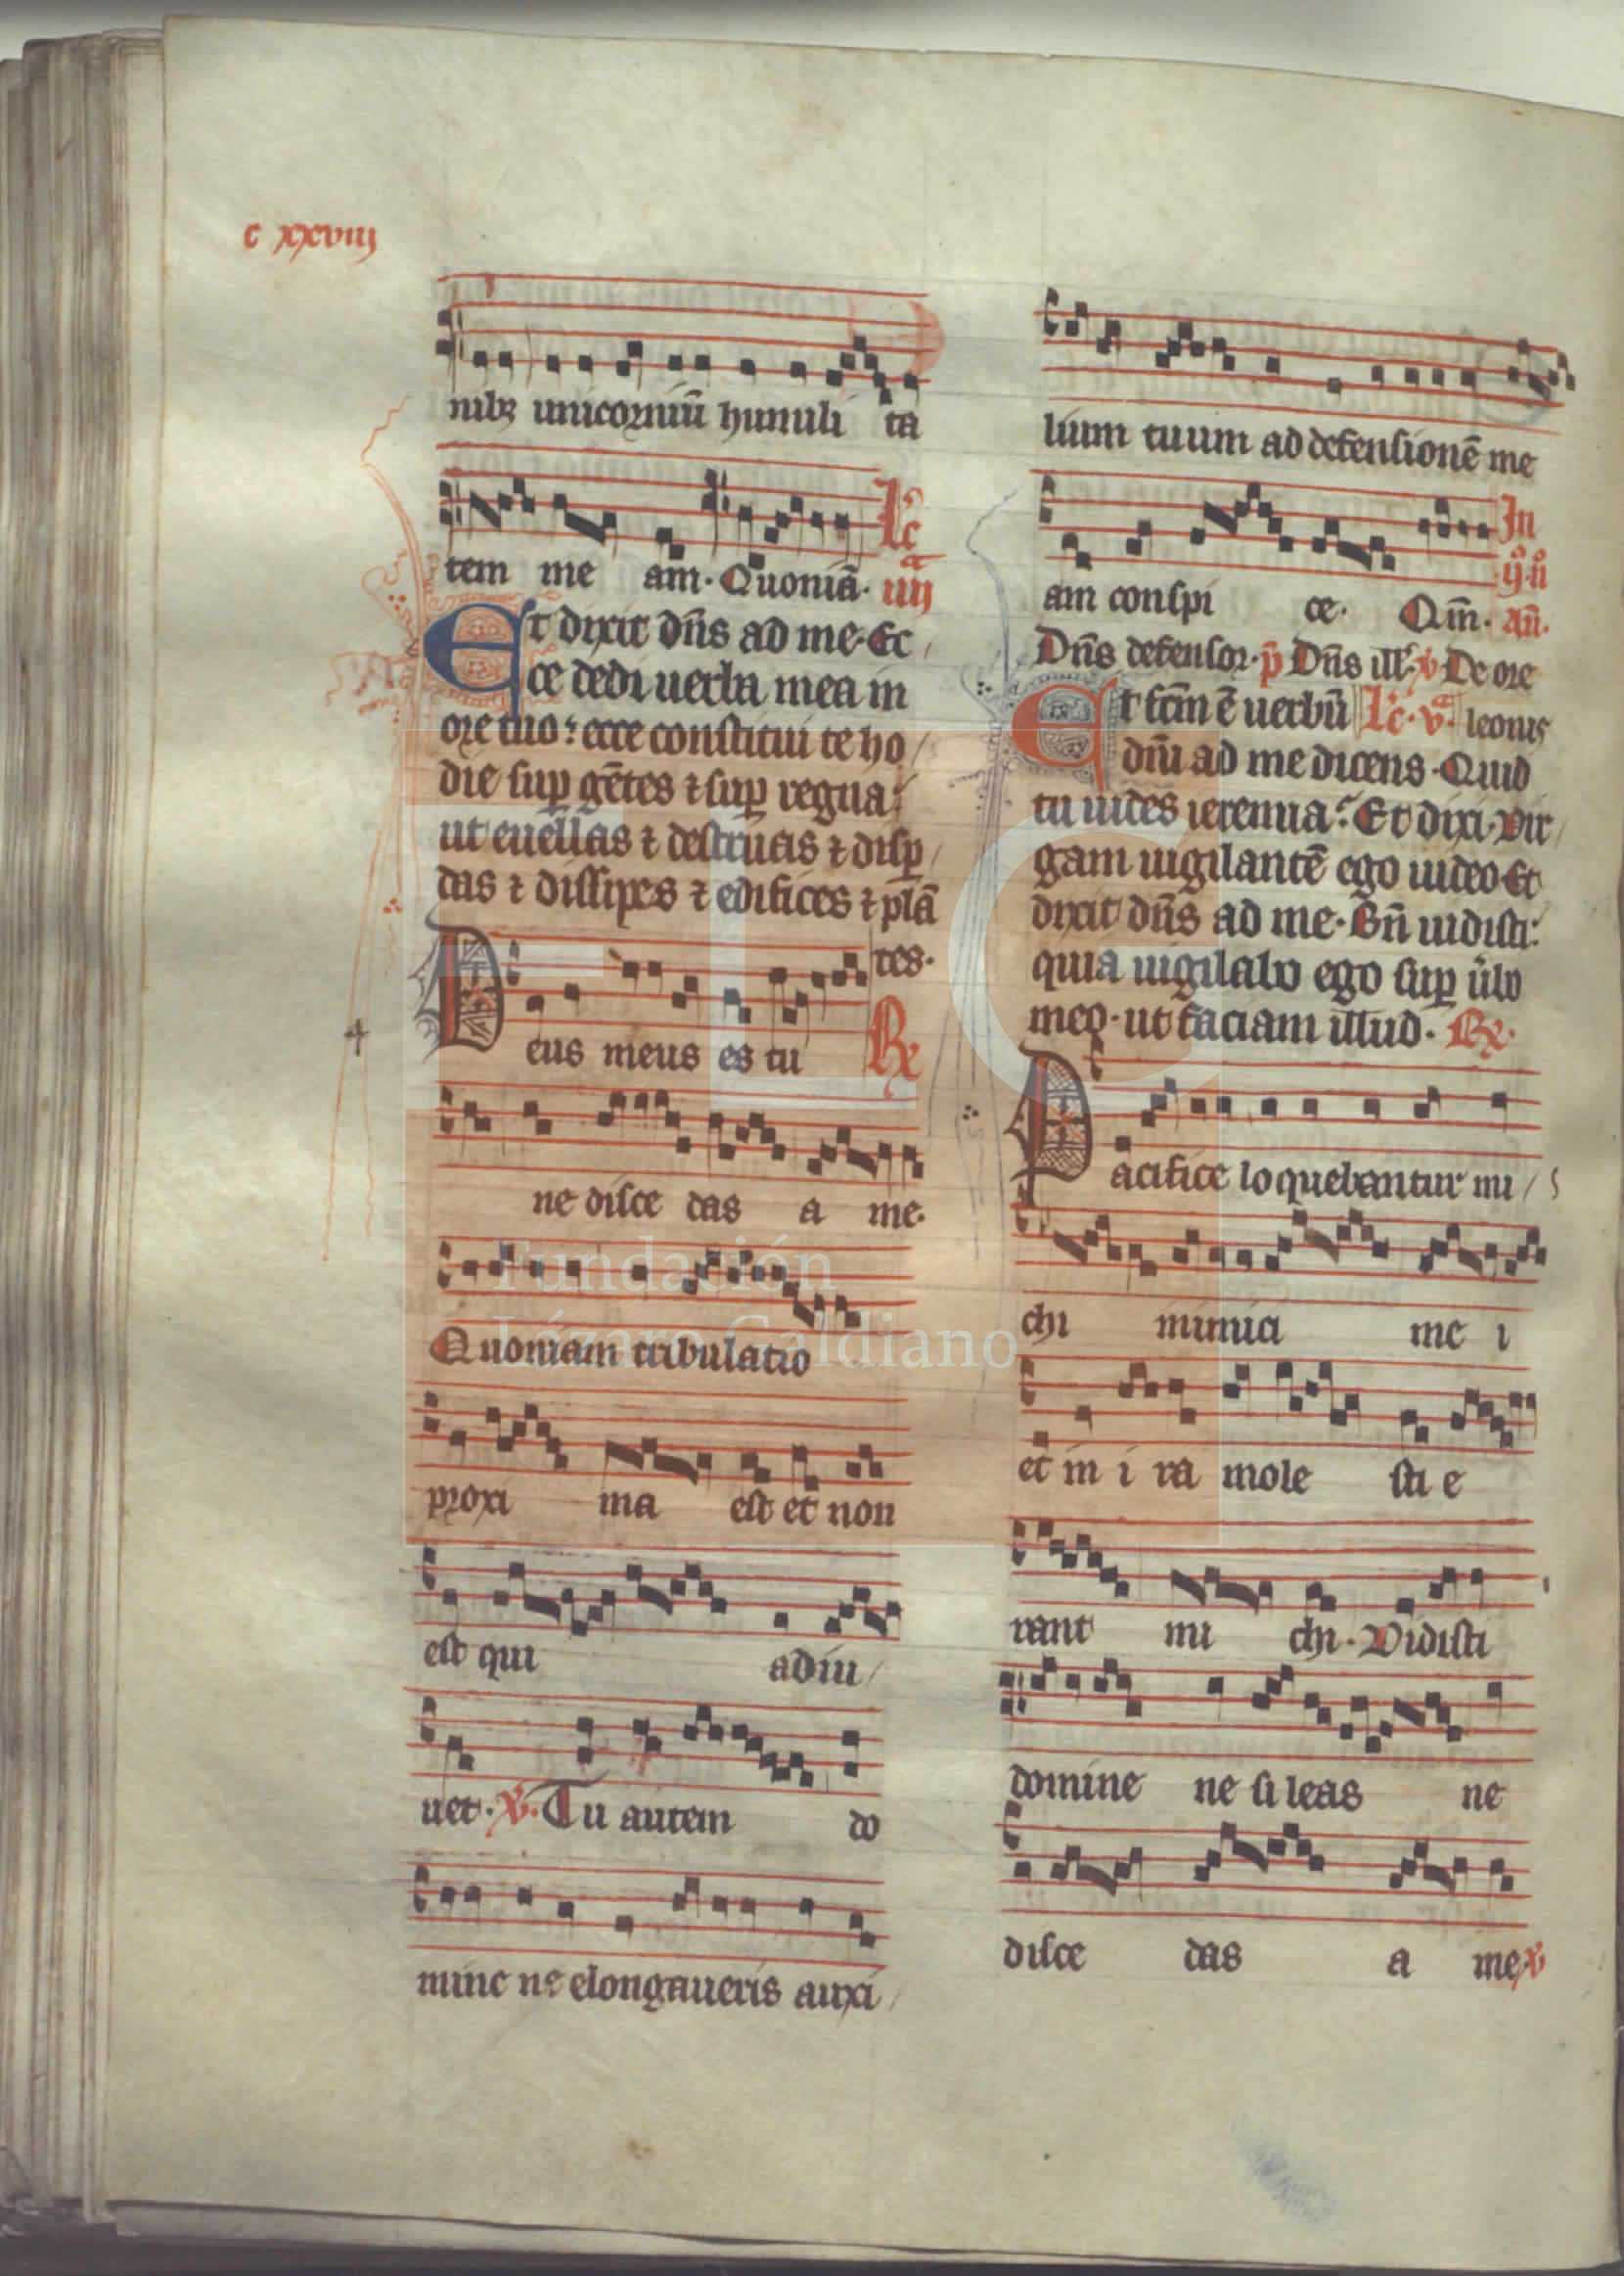 c xxviij
nibꝫ unicorniū humili ta
tem me am. Quoniā. Lc̄
iiijᵃ
Et dixit dn̄s ad me. Ec
ce dedi uerba mea in
ore tuo: ecce constitui te ho
die suꝑ gētes ⁊ suꝑ regna:
ut euellas ⁊ destruas ⁊ disꝑ
das ⁊ dissipes ⁊ edifices ⁊ plā
tes.
Deus meus es tu ℟
ne disce das a me.
Quoniam tribulatio
proxi ma est et non
est qui adiu
uet. ℣. Tu autem do
mine ne elongaueris auxi
lium tuum ad defensionē me
am conspi ce. Qm̄. In
ij. n̊
an̄.
Dn̄s defensor. p̄ Dn̄s ill. ℣ De ore
Et fc̄m ē uerbū Lc̄. vᵃ. leonis
dn̄i ad me dicens. Quid
tu uides ieremia? Et dixi. Vir
gam uigilantē ego uideo. Et
dixit dn̄s ad me. Bn̄ uidisti:
quia uigilabo ego suꝑ ūbo
meo. ut faciam illud. ℟.
Pacifice loquebantur mi
chi inimici me i
et in i ra mole sti e
rant mi chi. Vidisti
domine ne si leas ne
disce das a me ℣
Fundación
Lázaro Galdiano